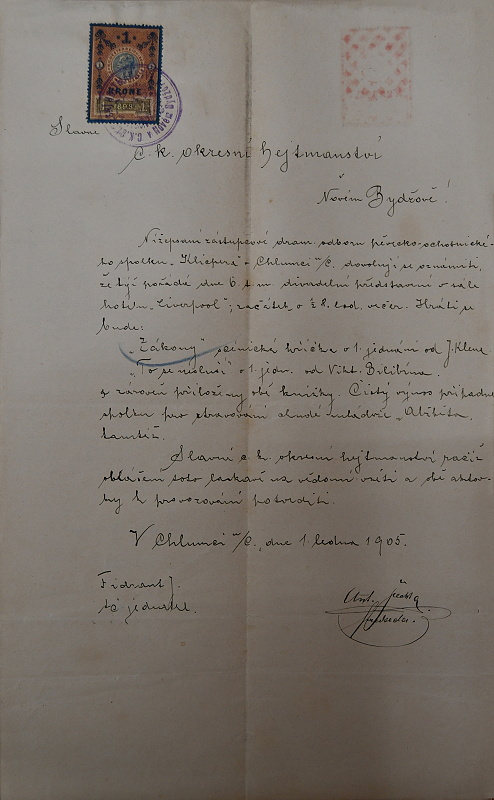 1
KRONE
1898
Slavné
C. k. okresní hejtmanství
v
Novém Bydžově!
Nížepsaní zástupcové dram. odboru pěvecko-ochotnické-
ho spolku „Klicpera“ v Chlumci n/C. dovolují si oznámiti,
že týž pořádá dne 6. t. m. divadelní představení v sále
hotelu „Liverpool“; začátek o ½ 8. hod. večer. Hráti se
bude:
„Zákony“ scénická hříčka o 1. jednání od J.
„To se nesluší“ o 1. jedn. od Vikt. Bilibina.
a zároveň přiloženy obě knížky. Čistý výnos připadne
spolku pro stravování chudé mládeže
tamtéž.
Slavné c. k. okresní hejtmanství račiž
toto laskavě na vědomí vzíti a obě aktov-
ky k provozování potvrditi.
V Chlumci n/C., dne 1. ledna 1905.
J.
t. č. jednatel.
Ant.
předseda.